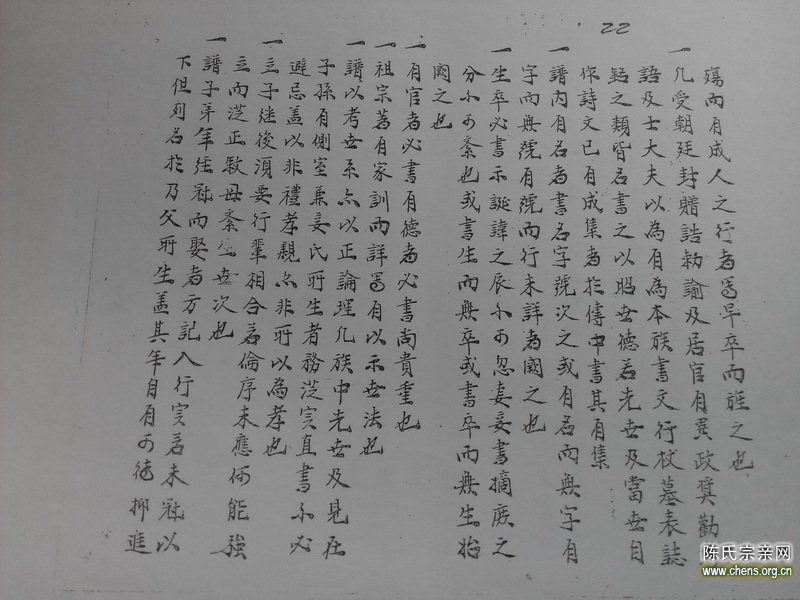 22
殤而有成人之行者寫早卒而旌之也
一凡受朝廷封贈誥勅諭及居官有異政奨勸
語及士大夫以為有為本族書文行杖墓表誌
銘之類皆名書之以昭世德若先世及當世自
作詩文已有成集者於傳中書其有集
一譜內有名者書名字號次之或有名而無字有
字而無號有號而行未詳者闕之也
一生卒必書示誕諱之辰不可忽妻妾書摘庶之
分不可紊也或書生而無卒或書卒而無生始
闕之也
一有官者必書有德者必書尚貴重也
一祖宗著有家訓而詳寫有以示世法也
一譜以考世系亦以正論理凡族中先世及見在
子孫有側室兼妾氏所生者務從实直書不必
避忌蓋以非禮孝親亦非所以為孝也
一立子继後須要行輩相合若倫序未應何能強
立而從正敘毋紊生世次也
一譜子弟年经冠而娶者方記入行实若未冠以
下但列名於乃父所生蓋其年自有可徳抑進
陈氏宗亲网
www.chens.org.cn